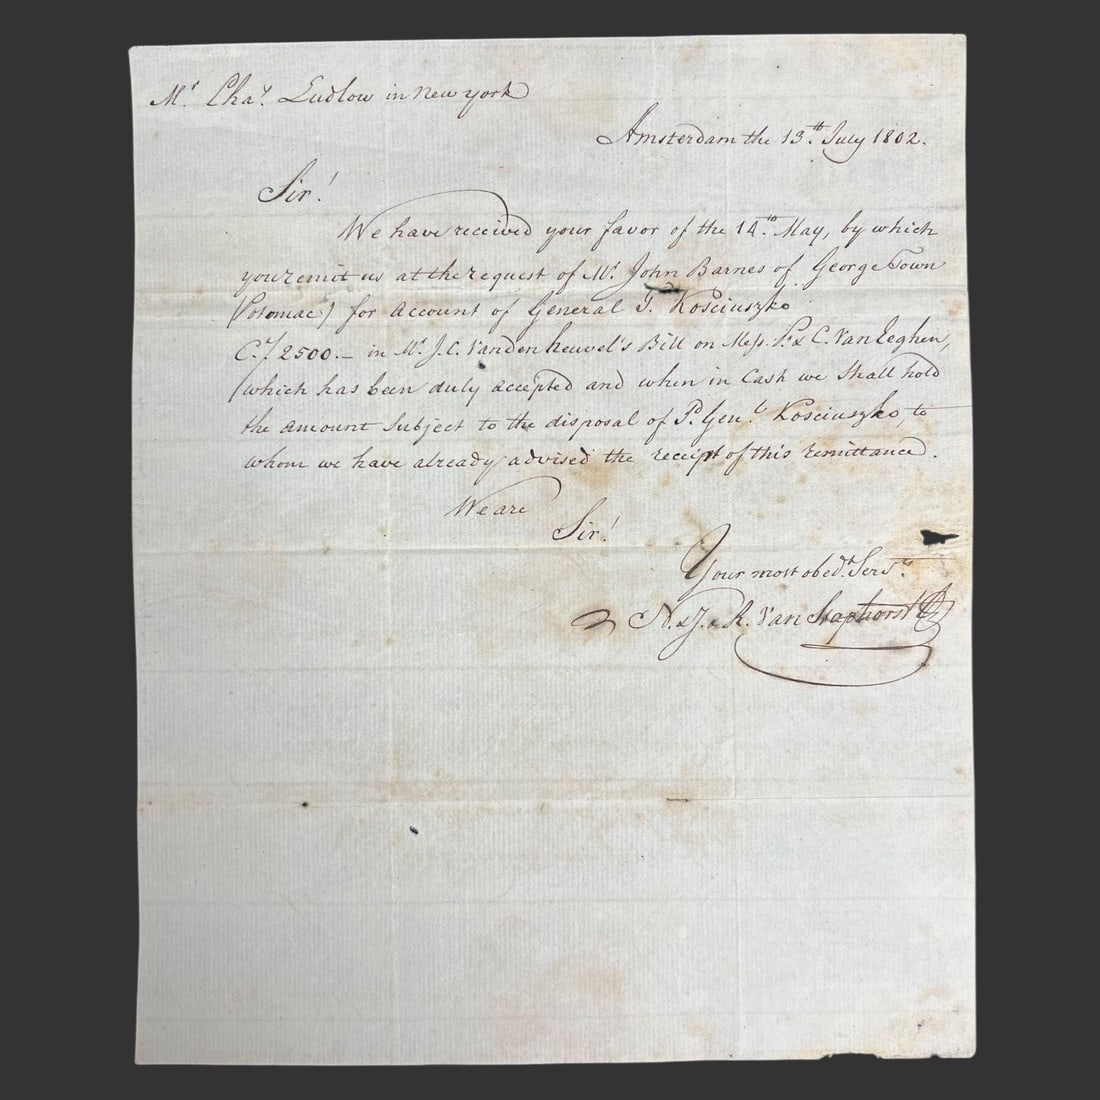 Mr. Chas. Ludlow in New York
Amsterdam the 13.th July 1802.
Sir!
We have received your favor of the 14.th May, by which
you remit us at the request of Mr. John Barnes of George Town
(Potomac) for account of General T. Kosciuszko
C.f 2500.- in Mr. J.C. Vanden heuvel's Bill on Mess. P. & C. Van Eeghen,
(which has been duly accepted and when in Cash we shall hold
the amount Subject to the disposal of Gen.l Kosciuszko, to
whom we have already advised the receipt of this remittance.
We are
Sir!
Your most obed.t Serv.ts
N. & J. & R. Van Staphorst